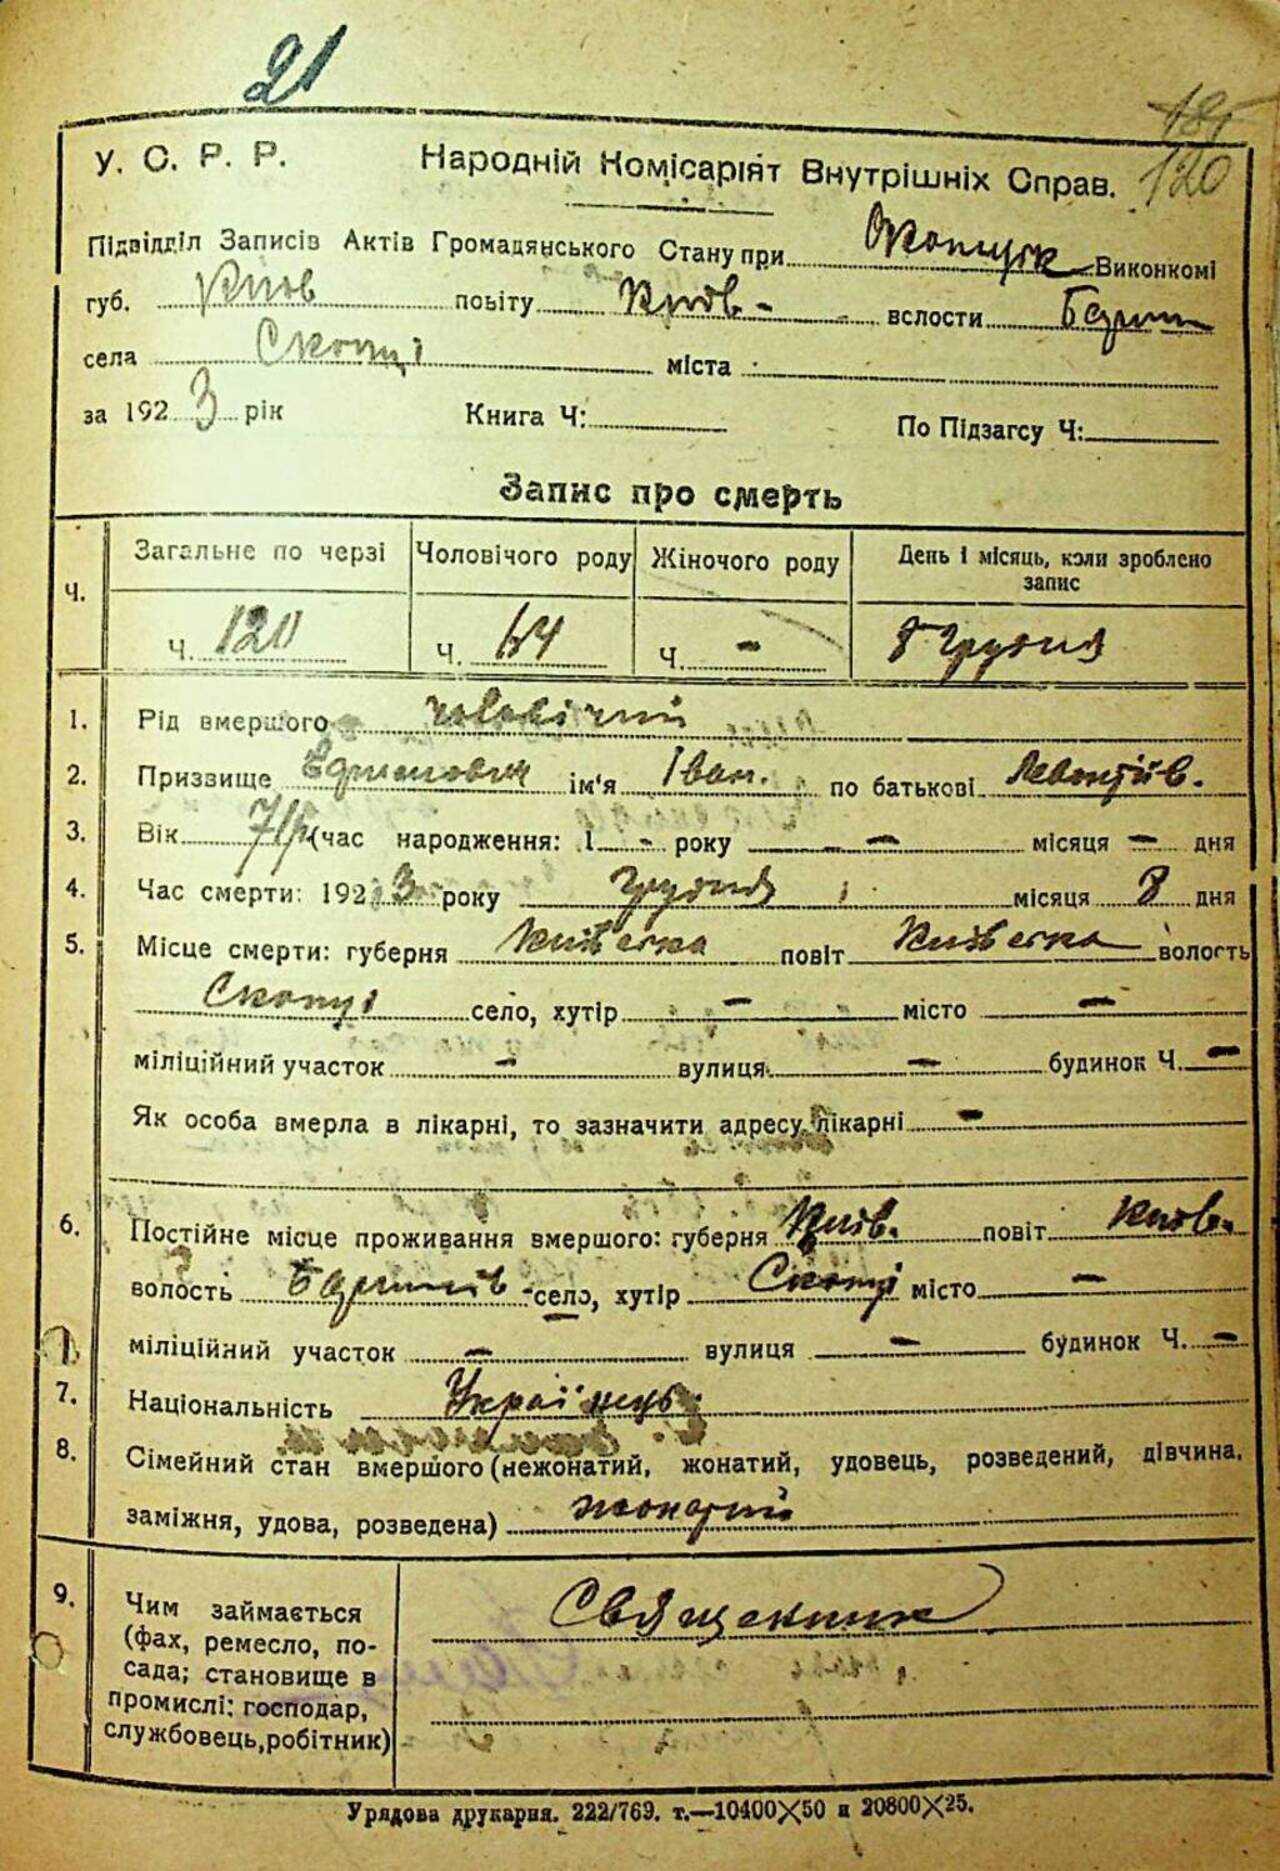 21
185
120
У. С. Р. Р. Народній Комісаріят Внутрішніх Справ.
Підвідділ Записів Актів Громадянського Стану при Виконкомі
губ. Київ повіту Київ- вслости
села Скопці міста
за 1923 рік Книга Ч: По Підзагсу Ч:
Запис про смерть
Ч. Загальне по черзі Чоловічого роду Жіночого роду День і місяць, коли зроблено запис
Ч. 120 Ч. 64 Ч. - 8 Грудня
1. Рід вмершого чоловічий
2. Призвище ім'я Іван. по батькові Левонтіїв.
3. Вік 71р (час народження: 1 - року - - місяця - дня
4. Час смерти: 1923 року грудня місяця 8 дня
5. Місце смерти: губерня Київська повіт Київська волость
Скопці село, хутір - місто -
міліційний участок - вулиця - будинок Ч. -
Як особа вмерла в лікарні, то зазначити адресу лікарні -
6. Постійне місце проживання вмершого: губерня Київ. повіт Київ.
волость село, хутір Скопці місто -
міліційний участок - вулиця - будинок Ч. -
7. Національність Українець.
8. Сімейний стан вмершого (нежонатий, жонатий, удовець, розведений, дівчина,
заміжня, удова, розведена) жонатий
9. Чим займається Священник
(фах, ремесло, по-
сада; становище в
промислі: господар,
службовець, робітник)
Урядова друкарня. 222/769. т.—10400×50 и 20800×25.